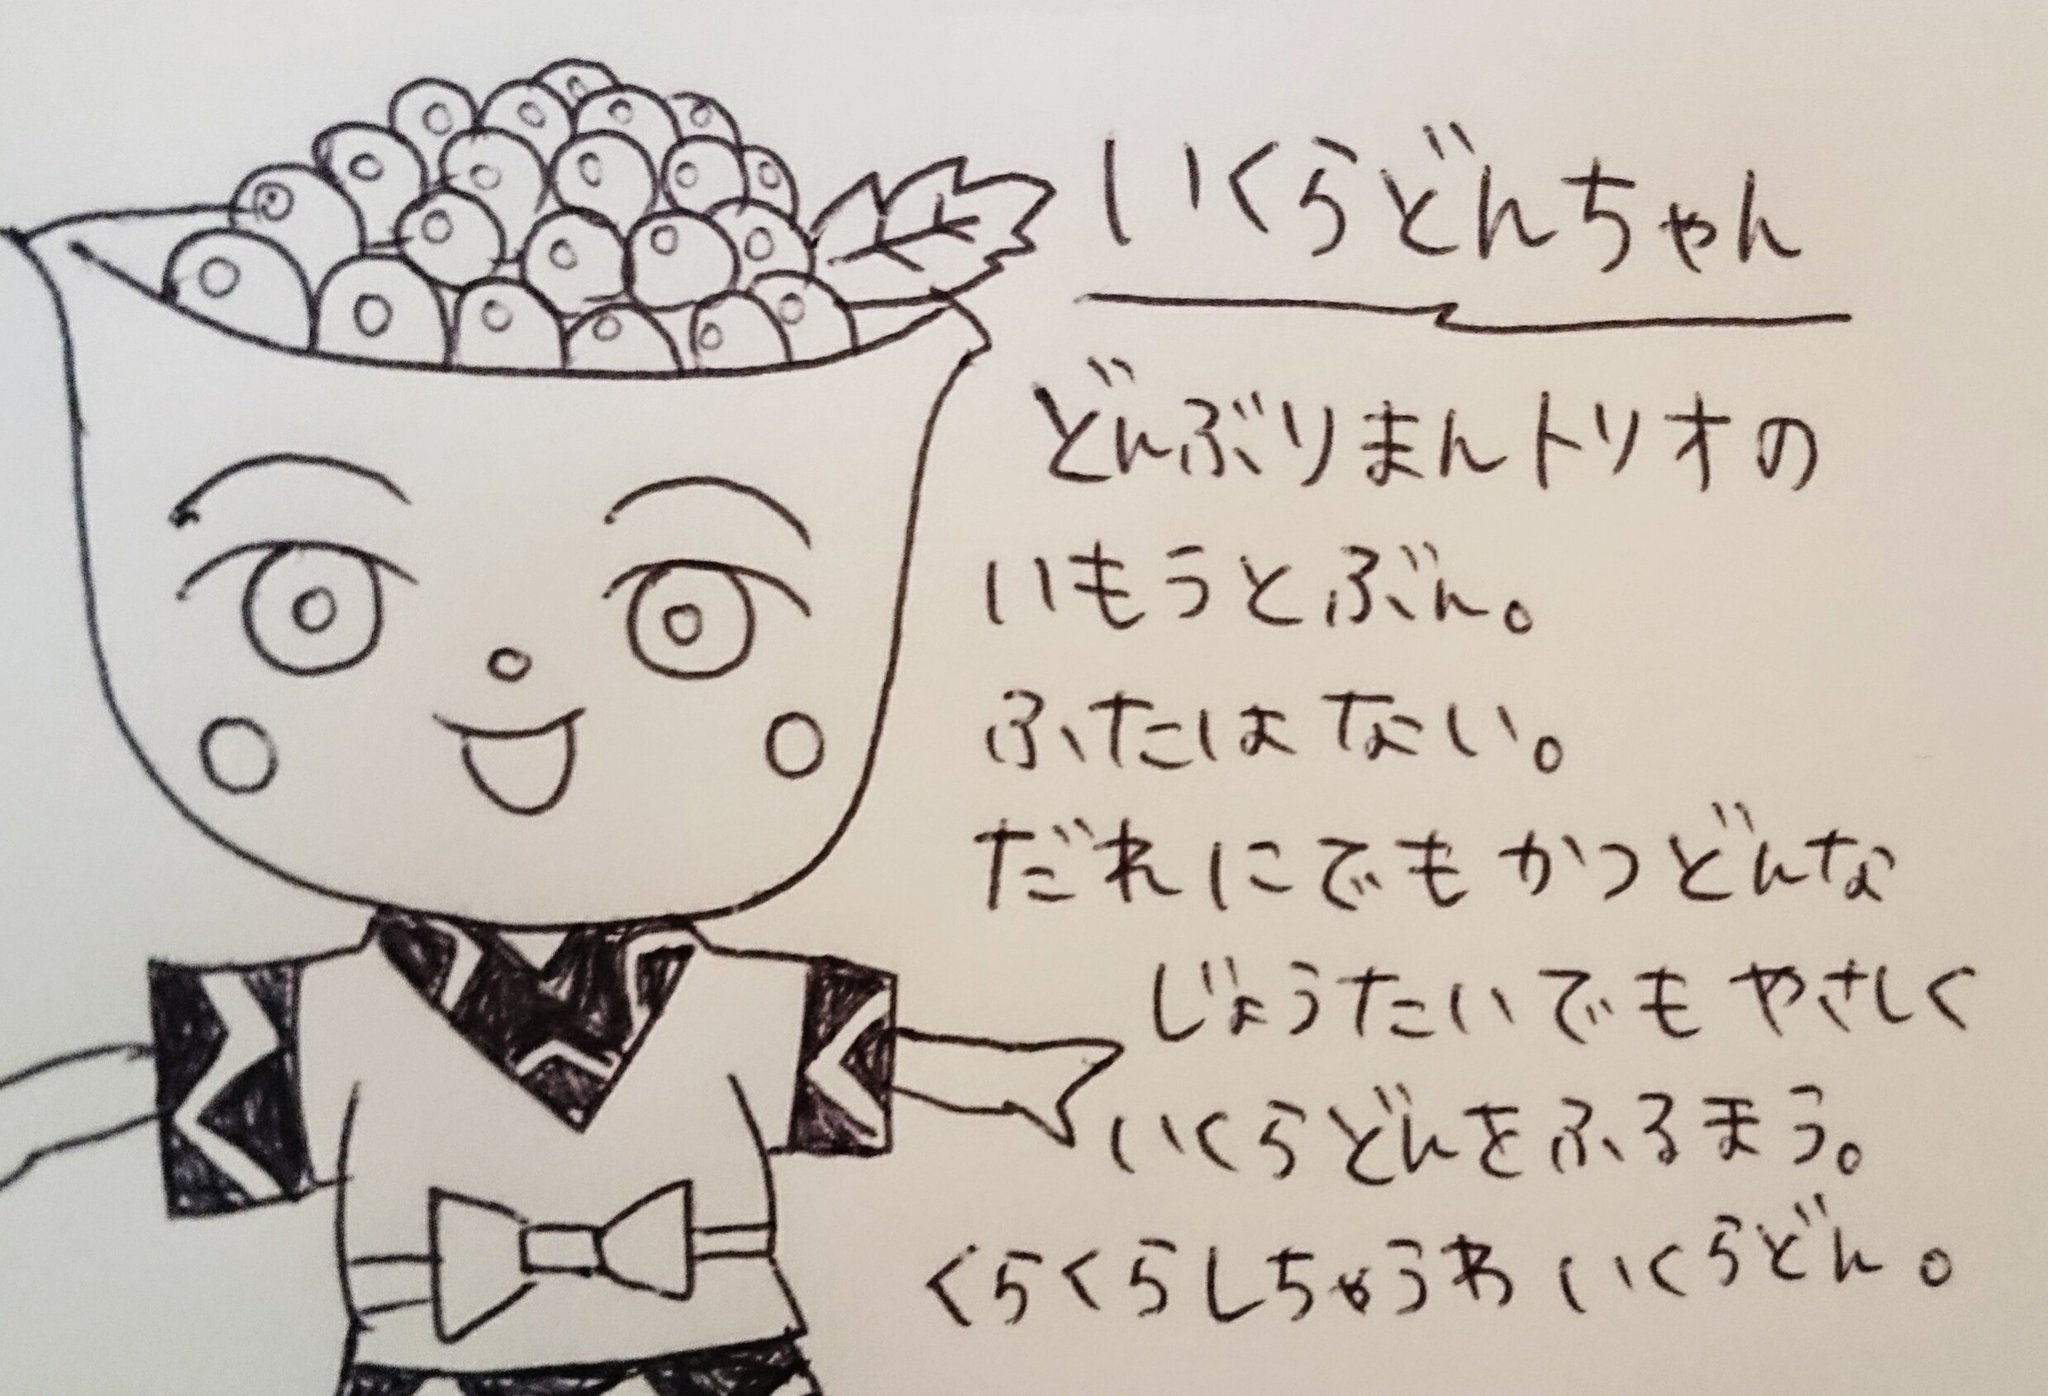 いくらどんちゃん
どんぶりまんトリオの
いもうとぶん。
ふたはない。
だれにでもかつどんな
じょうたいでもやさしく
いくらどんをふるまう。
くらくらしちゃうわ いくらどん。